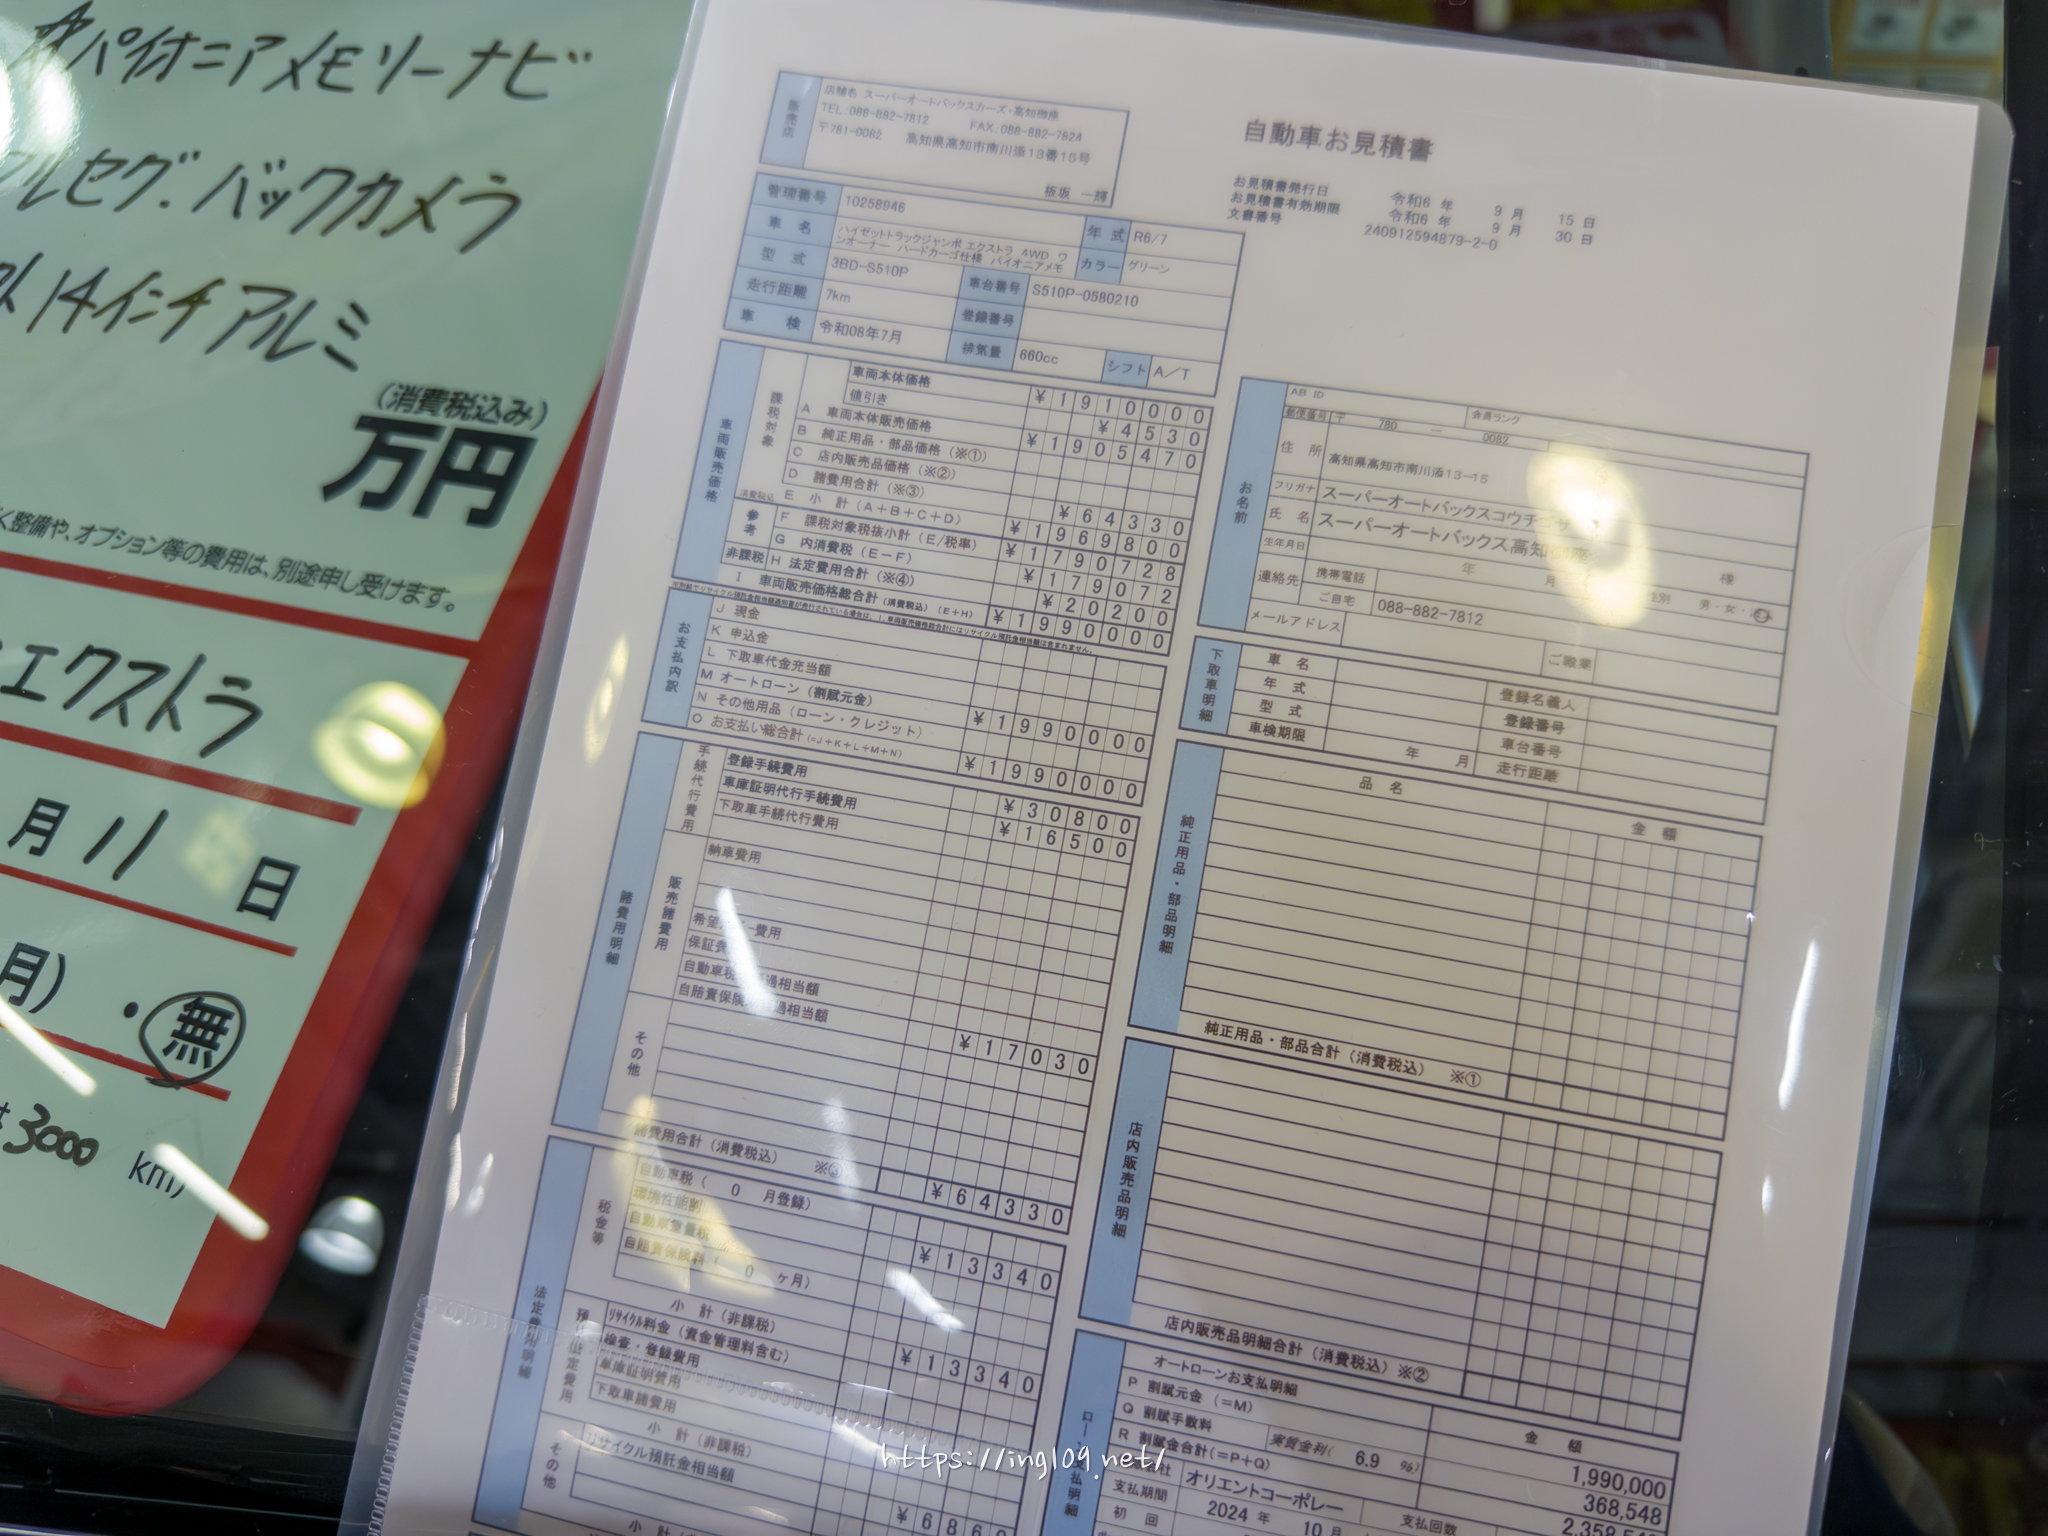 パイオニアメモリーナビ
フルセグ.バックカメラ
14インチアルミ
(消費税込み)
万円
整備や、オプション等の費用は、別途申し受けます。
エクストラ
月 11 日
月)・無
3000 km)
自動車お見積書
販売店
店舗名 スーパーオートバックスカーズ・高知御座
TEL:088-882-7812 FAX:088-882-7824
〒781-0082 高知県高知市南川添13番15号
板坂 一輝
お見積書発行日 令和6 年 9 月 15 日
お見積書有効期限 令和6 年 9 月 30 日
文書番号 240912594879-2-0
管理番号 10258946
車名 ハイゼットトラックジャンボ エクストラ 4WD ワンオーナー ハードカーゴ仕様 パイオニアメモ
年式 R6/7
カラー グリーン
型式 3BD-S510P
車台番号 S510P-0580210
走行距離 7km
登録番号
車検 令和08年7月
排気量 660cc
シフト A/T
車両販売価格
課税対象
車両本体価格 ¥1910000
値引き ¥4530
A 車両本体販売価格 ¥1905470
B 純正用品・部品価格(※①)
C 店内販売品価格(※②)
D 諸費用合計(※③) ¥64330
消費税込 E 小計(A+B+C+D) ¥1969800
参考 F 課税対象税抜小計(E/税率) ¥1790728
G 内消費税(E-F) ¥179072
非課税 H 法定費用合計(※④) ¥20200
I 車両販売価格総合計(消費税込)(E+H) ¥1990000
お支払内訳
J 現金
K 申込金
L 下取車代金充当額
M オートローン(割賦元金) ¥1990000
N その他用品(ローン・クレジット)
O お支払い総合計(=J+K+L+M+N) ¥1990000
諸費用明細
手続代行費用
登録手続費用 ¥30800
車庫証明代行手続費用 ¥16500
下取車手続代行費用
販売諸費用
納車費用
希望 費用
保証費
自動車税 過相当額
自賠責保険 過相当額 ¥17030
その他
諸費用合計(消費税込) ※③ ¥64330
法定費用明細
税金等
自動車税( 0 月登録)
環境性能割
自動車重量税 ¥13340
自賠責保険料( 0 ヶ月)
小計(非課税) ¥13340
預 法定費用
リサイクル料金(資金管理料含む)
検査・登録費用
車庫証明費用
下取車諸費用
小計(非課税) ¥686
その他
リサイクル預託金相当額
小計
お名前
AB ID
会員ランク
郵便番号 〒 780 - 0082
住所 高知県高知市南川添13-15
フリガナ スーパーオートバックスコウチ
氏名 スーパーオートバックス高知 様
生年月日 年 月 性別 男・女・
連絡先 携帯電話
ご自宅 088-882-7812
メールアドレス
ご職業
下取車明細
車名 登録名義人
年式 登録番号
型式 車台番号
車検期限 年 月 走行距離
純正用品・部品明細
品名 金額
純正用品・部品合計(消費税込) ※①
店内販売品明細
店内販売品明細合計(消費税込)※②
オートローンお支払明細 金額
P 割賦元金 (=M) 1,990,000
Q 割賦手数料 実質金利( 6.9 %) 368,548
R 割賦金合計(=P+Q)
会社 オリエントコーポレー
支払期間 2024 年 10 月
支払回数
初回
https://ing109.net/